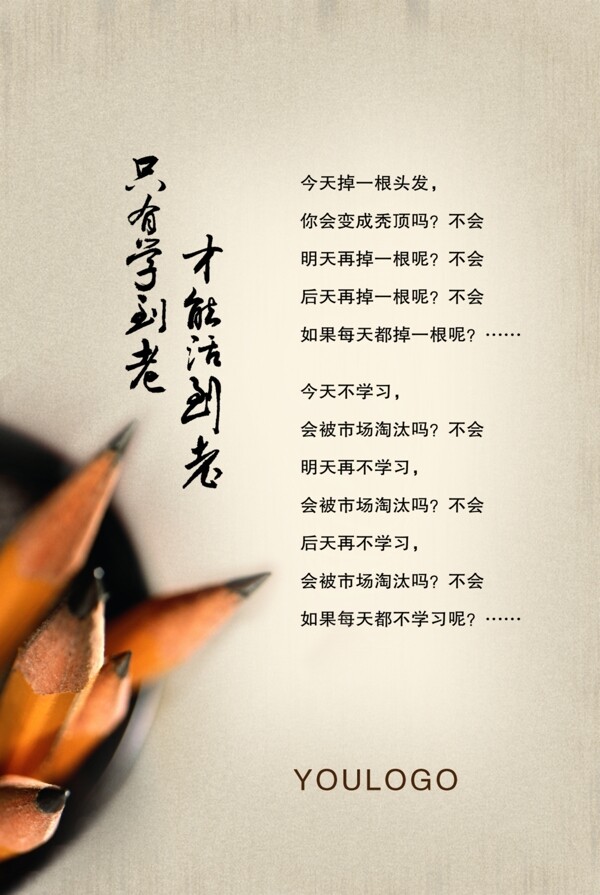 只有学到老
才能活到老
今天掉一根头发，
你会变成秃顶吗？不会
明天再掉一根呢？不会
后天再掉一根呢？不会
如果每天都掉一根呢？……
今天不学习，
会被市场淘汰吗？不会
明天再不学习，
会被市场淘汰吗？不会
后天再不学习，
会被市场淘汰吗？不会
如果每天都不学习呢？……
YOULOGO